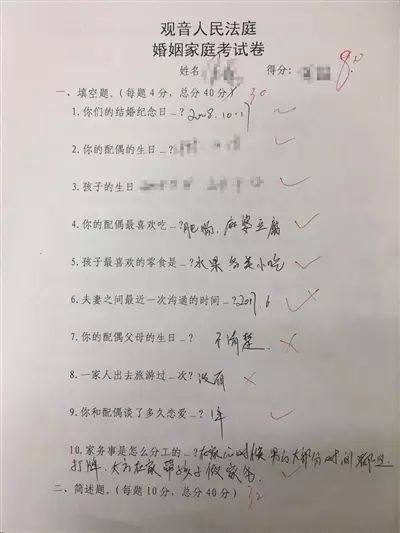 观音人民法庭
婚姻家庭考试卷
姓名 得分: 80
一、填空题。（每题4分，总分40分）30
1.你们的结婚纪念日_?2008.10.17
2.你的配偶的生日_?
3.孩子的生日
4.你的配偶最喜欢吃_?肥肠、麻婆豆腐
5.孩子最喜欢的零食是_?水果 各类小吃
6.夫妻之间最近一次沟通的时间_?2017.6
7.你的配偶父母的生日_? 不清楚
8.一家人出去旅游过_次?没有
9.你和配偶谈了多久恋爱_? 1年
10.家务事是怎么分工的_?在家的时候 男的大部分时间都在
打牌、太太在家带孩子做家务
二、简述题。(每题10分，总分40分）32